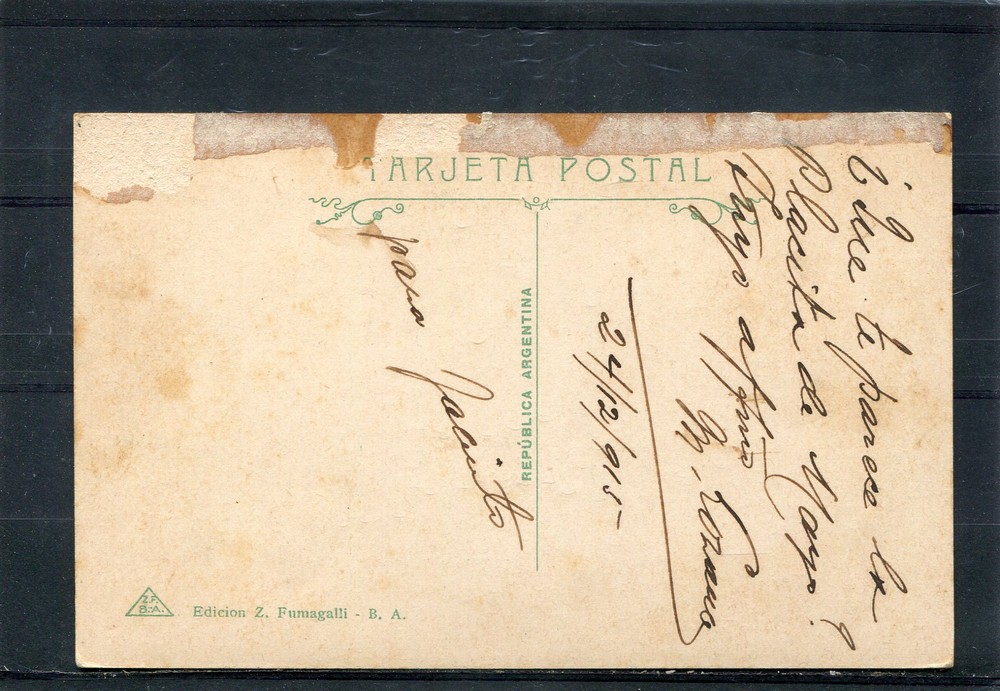 TARJETA POSTAL
REPÚBLICA ARGENTINA
¿Que te parese la
Placita de Mayo?
Tuyo afmo
Lozano
24/12/915
para
Z.F.
B.A.
Edicion Z. Fumagalli - B. A.